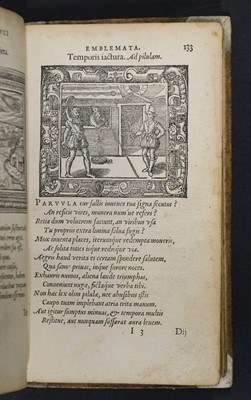 EMBLEMATA. 133
Temporis iactura. Ad pilulam.
PARVULA cur fallis iuuenes tua signa secutos?
An reficis vires, munera num ut referes?
Retia dum volucrem faciunt, an viribus vsa
Tu proprijs extra limina solua fugis?
Mox inuenta places, iterumque redempta moueris,
Ac solita toties inque redisque via.
Aegris haud verita es certam spondere salutem,
Qua sine prius, inque furore noces.
Exhauris numos, aliena laude triumphas,
Conueniunt nugæ, fictaque verba tibi.
Non hac lex olim pilulæ, nec abusibus istis
Caupo tuam implebat atria trita manum.
Aut igitur sumptus minuas, & tempora multis
Restitue, aut nunquam suffarat aura leuem.
I 3 Dij